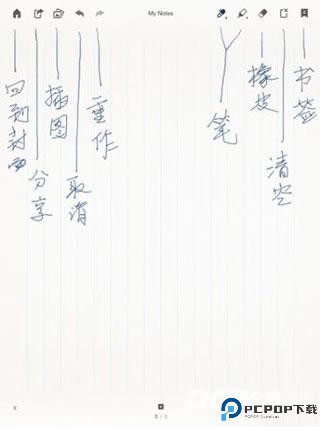 My Notes
回到封面
分享
插图
取消
重作
笔
橡皮
清空
书签
3 / 3
PCPOP下载